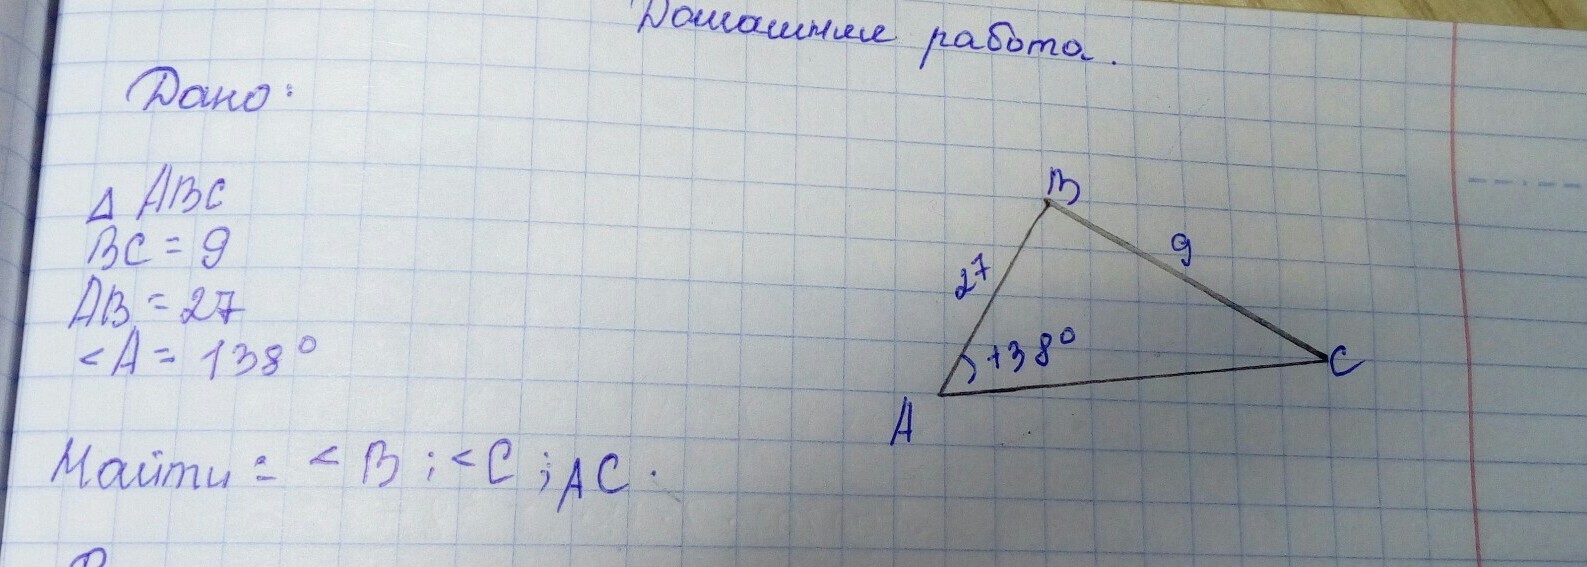 Домашняя работа.
Дано:
△ ABC
BC = 9
AB = 27
<A = 138°
Найти = <B ; <C ; AC .
B
27
9
138°
A
C